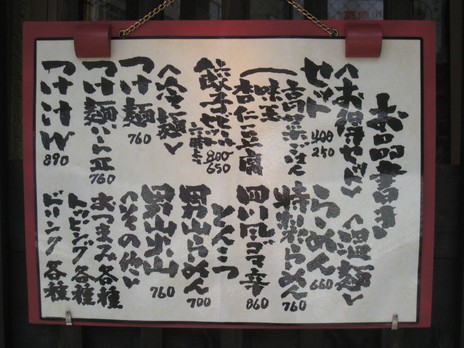 お品書き
〈お得なセット〉
セット
高菜ごはん
400
250
味玉
杏仁豆腐
餃子セット
800
650
〈冷麺〉
つけ麺
760
つけ麺
760
つけ汁W
890
〈温麺〉
らーめん
660
特製らーめん
760
四川風ゴマ辛
860
とんこつ
男山らーめん
700
男山火山
760
〈その他〉
おつまみ各種
トッピング各種
ドリンク各種